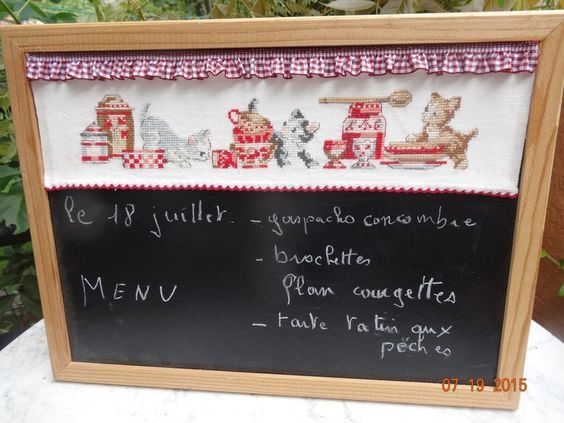 le 18 juillet - gaspacho concombre
- brochettes
MENU flan courgettes
- tarte tatin aux
pêches
07 19 2015